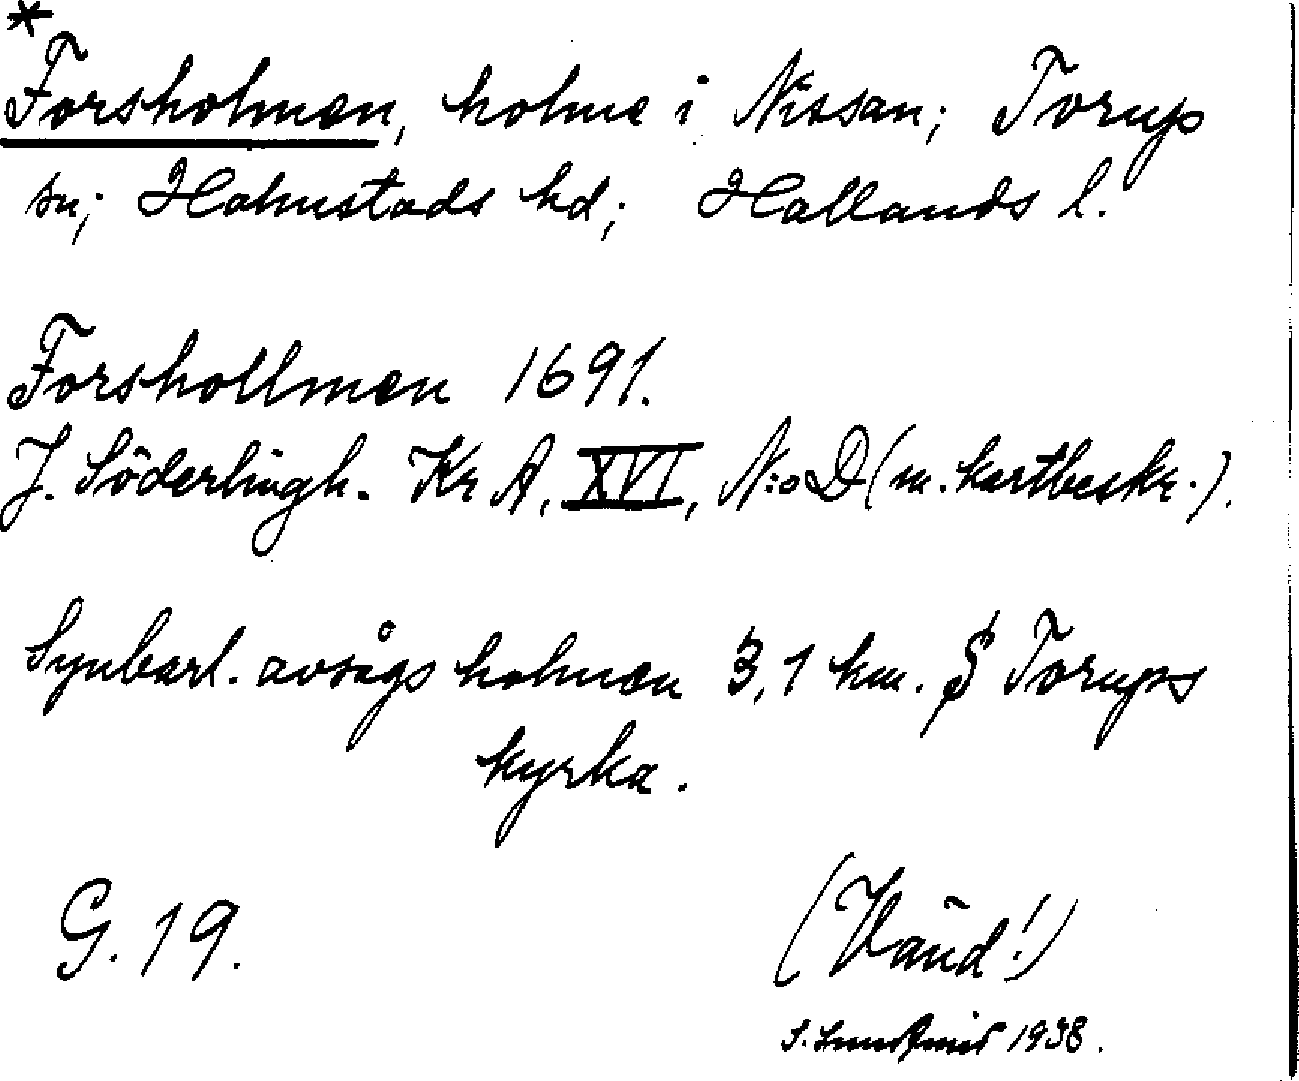 *
Forsholmen, holme i Nissan; Torups
sn; Halmstads hd; Hallands l.
Forshollmen 1691.
J. Söderlingh. Kr A, XVI, N:o D (m. kartbeskr.).
Synbarl. avsågs holmen 3,1 km. S Torups
kyrka.
G. 19.
(Vänd!)
S. 1938.